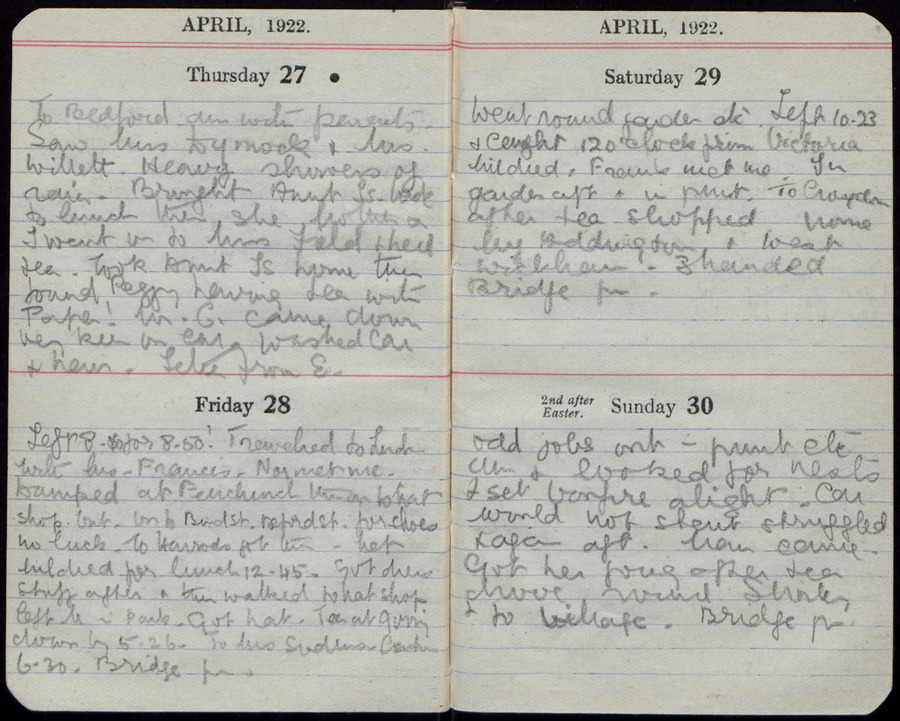 APRIL, 1922.
Thursday 27
To Bedford am with parents.
Saw Mrs Dymock & Mrs.
Willett Heavy showers of
rain. Brought Aunt Is. back
to lunch then she mother &
I went on to Mrs Field & had
tea. Took Aunt Is home then
found Peggy having tea with
Papa! Mr. C. came down
very keen on car, washed car
& hens. Letter from E.
Friday 28
Left 8- for 8-50! Travelled to
with Mrs. Francis. No met me.
at Fenchurch to hat
shop but. on to Bond St. Oxford St. for shoes
no luck. To Harrods got - met
Mildred for lunch 12-45. Got dress
stuff after & then walked to hat shop
left Park. Got hat. Tea at
down by 5-26. To Mrs
6-30. Bridge pm.
APRIL, 1922.
Saturday 29
Went round garden etc. Left 10-23
& caught 12 o'clock from Victoria
Mildred & Frank met me. In
garden aft & in punt. To Croydon
after tea shopped home
by Addington & West
Wickham. 3 handed
Bridge pm.
2nd after Easter. Sunday 30
Odd jobs out - punt etc
am & looked for nests
& set bonfire alight. Car
would not start struggled
again aft. Man came.
Got her going after tea
drove round Shirley
& to village. Bridge pm.